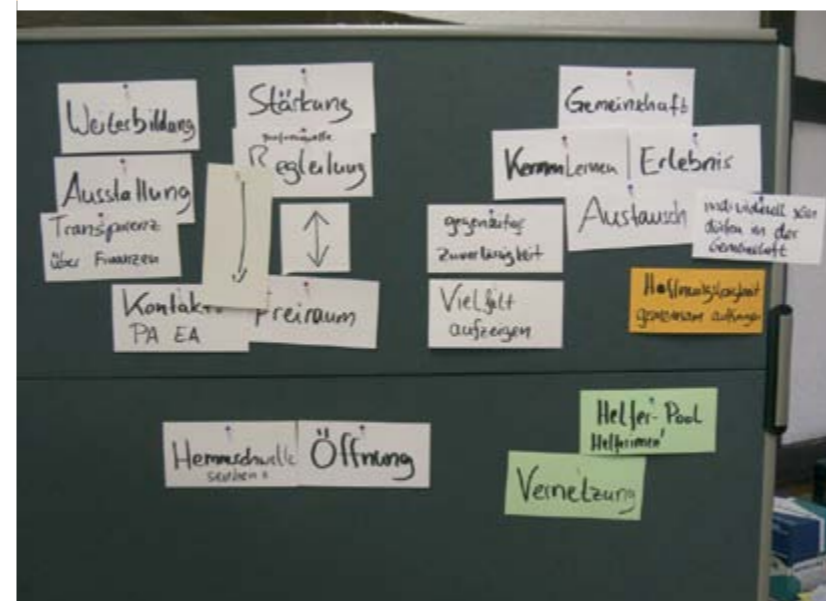 Weiterbildung
Stärkung
professionelle
Begleitung
Ausstattung
Transparenz
über Finanzen
Kontakte
PA EA
Freiraum
Gemeinschaft
Kennenlernen
Erlebnis
Austausch
individuell sein
dürfen in der
Gemeinschaft
gegenseitige
Zuverlässigkeit
Vielfalt
aufzeigen
Hoffnungslosigkeit
gemeinsam auffangen
Hemmschwelle
senken
Öffnung
Helfer-Pool
Helferinnen
Vernetzung